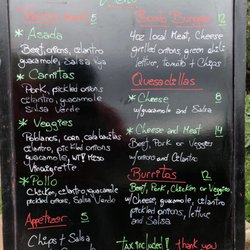 Menu
5
Bomb Burger 12
* Asada
Beef, onions, cilantro
guacamole, Salsa Roja
* Carnitas
Pork, pickled onions
cilantro, guacamole
Salsa Verde
* Veggies
Poblanos, corn, calabacitas
cilantro, pickled onions
guacamole, w/
Vinaigrette
* Pollo
Chicken, cilantro, guacamole
pickled onions, Salsa Verde
Appetizer 5
Chips + Salsa
4oz local Meat, Cheese
grilled onions, green chili
lettuce, tomato + Chips
Quesadillas
* Cheese 8
w/guacamole and
Salsa
* Cheese and Meat 14
Beef, Pork or Veggies
w/onions and Cilantro
guacamole and Salsa
Burritas 12
Beef, Pork, Chicken or Veggies
w/Cheese, guacamole, cilantro
pickled onions, lettuce
and Salsa
*tax included! thank you